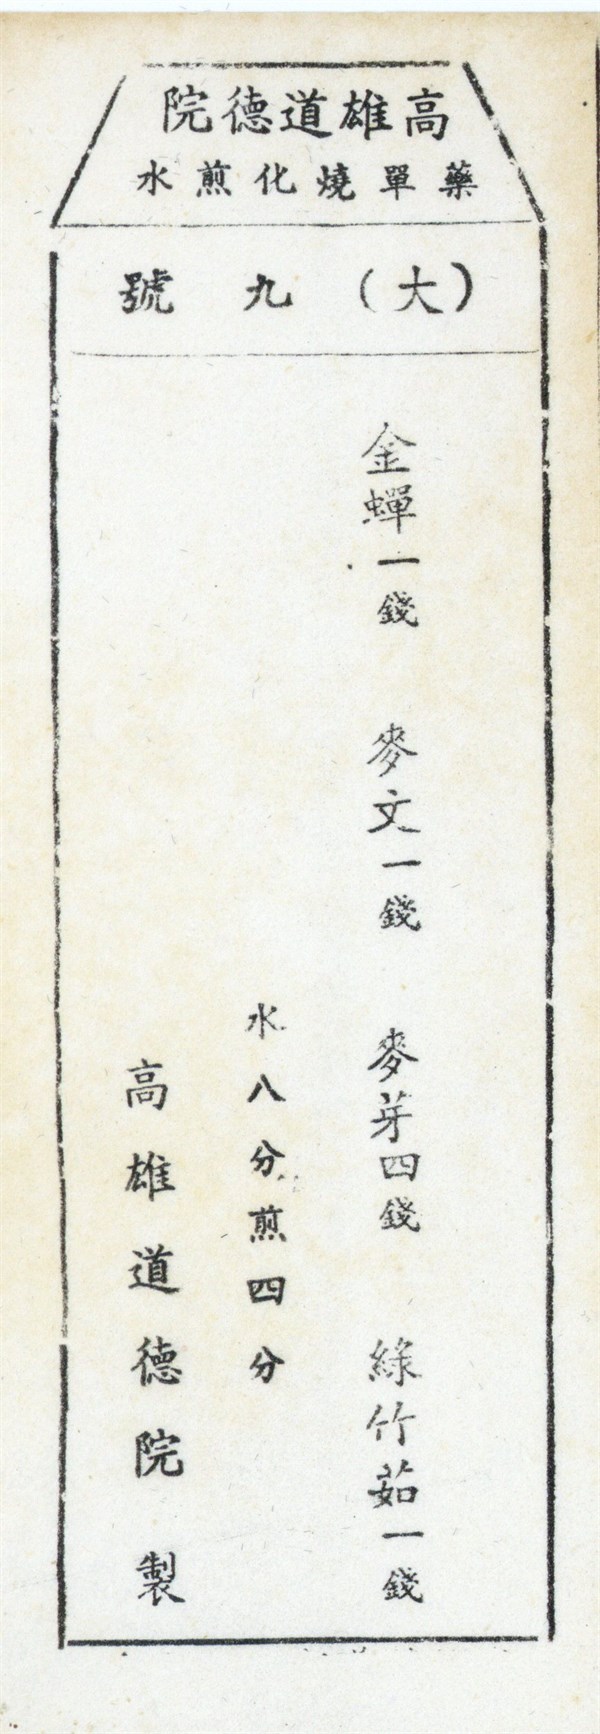 高雄道德院
藥單燒化煎水
（大）九號
金蟬一錢　麥文一錢　麥芽四錢　綠竹茹一錢
水八分煎四分
高雄道德院製